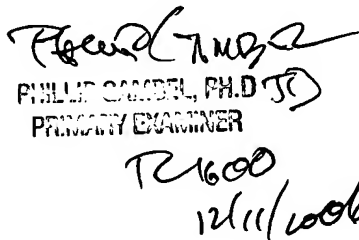 PHILLIP GAMBEL, PH.D JD
PRIMARY EXAMINER
TC1600
12/11/2006